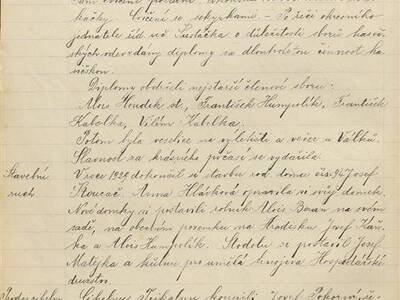 kačky. Cvičení se sekyrkami. - Po řeči okresního
jednatele žup. o důležitosti sborů hasič-
ských odevzdány diplomy za dlouholetou činnost ha-
sičskou.
Diplomy obdrželi nejstarší členové sboru:
Alois Houdek st., František Humpolík, František
Kabelka, Vilém Kabelka.
Potom byla veselice na výletišti a večer u Válků.
Slavnost za krásného počasí se vydařila.
Stavební
ruch.
V roce 1929 dokonal si stavbu rod. domu čís. 94 Josef
Koucač. Anna Hlásková opravila si svůj domek.
Nové domky si postavili rolník Alois Beran na svém
sadě, na obecním pozemku na Hradisku Josef Káň-
ka a Alois Humpolík. Stodolu si postavil Josef
Matyska a kůlnu pro umělá hnojiva Hospodářské
družstvo.
koupili Josef Pokorný